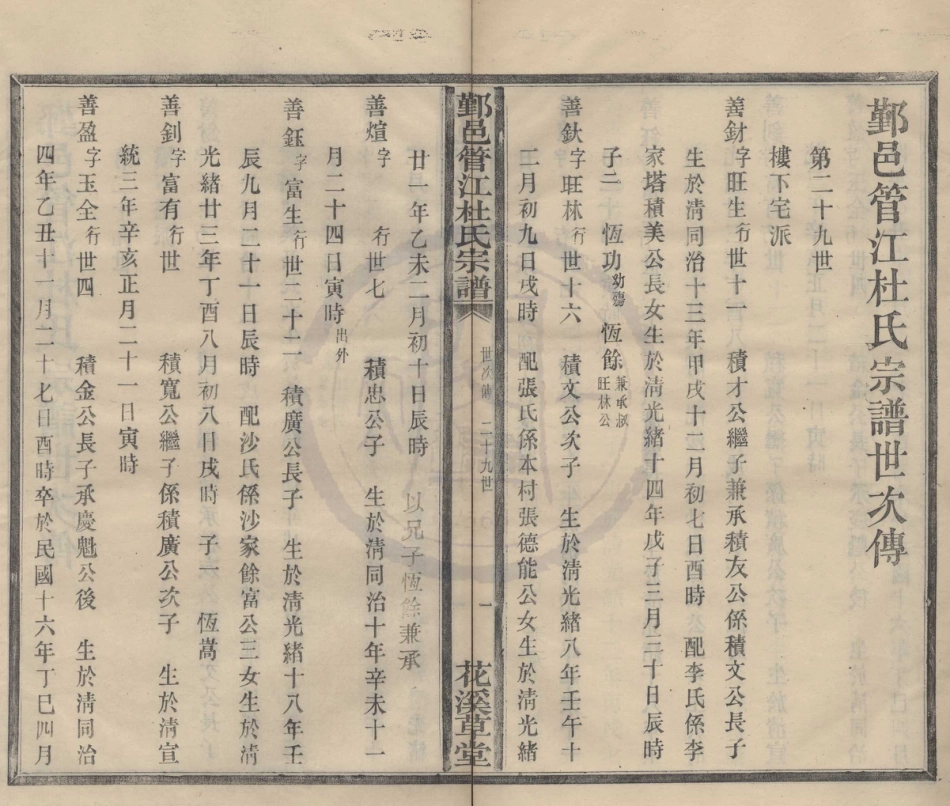 鄞邑管江杜氏宗譜世次傳
第二十九世
樓下宅派
善財字旺生行世十一 積才公繼子兼承積友公係積文公長子
生於淸同治十三年甲戌十二月初七日酉時 配李氏係李
家塔積美公長女生於淸光緒十四年戊子三月三十日辰時
子二 恆功幼殤 恆餘兼承叔旺林公
善鈥字旺林行世十六 積文公次子 生於淸光緒八年壬午十
二月初九日戌時 配張氏係本村張德能公女生於淸光緒
鄞邑管江杜氏宗譜 世次傳 二十九世 一 花溪草堂
廿一年乙未二月初十日辰時 以兄子恆餘兼承
善煊字 行世七 積忠公子 生於淸同治十年辛未十一
月二十四日寅時出外
善鈺字富生行世二十二 積廣公長子 生於淸光緒十八年壬
辰九月二十一日辰時 配沙氏係沙家餘富公三女生於淸
光緒廿三年丁酉八月初八日戌時 子一 恆嵩
善釗字富有行世 積寬公繼子係積廣公次子 生於淸宣
統三年辛亥正月二十一日寅時
善盈字玉全行世四 積金公長子承慶魁公後 生於淸同治
四年乙丑十一月二十七日酉時卒於民國十六年丁巳四月